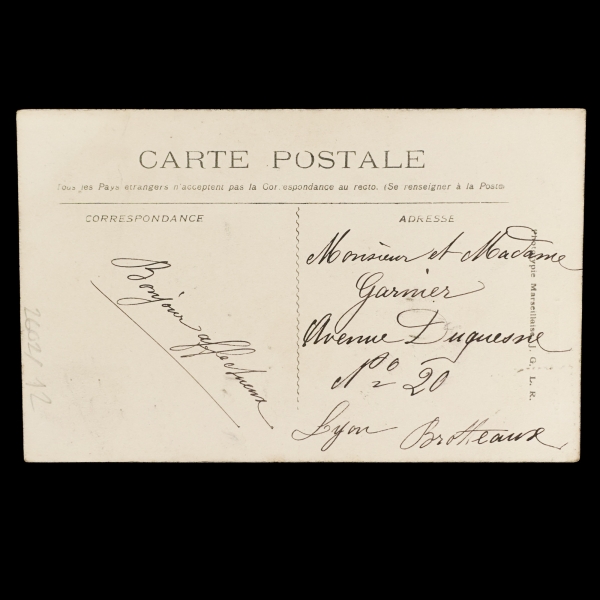 CARTE POSTALE
Tous les Pays étrangers n'acceptent pas la Correspondance au recto. (Se renseigner à la Poste)
CORRESPONDANCE
ADRESSE
Bonjour affectueux
Monsieur et Madame
Garnier
Avenue Duquesne
No 20
Lyon Brotteaux
Phototypie Marseillaise, J. G., L. R.